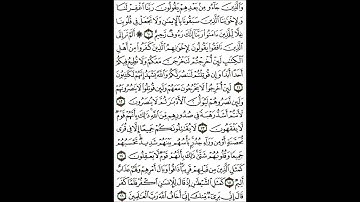 وَٱلَّذِينَ جَآءُو مِنۢ بَعْدِهِمْ يَقُولُونَ رَبَّنَا ٱغْفِرْ لَنَا
وَلِإِخْوَٰنِنَا ٱلَّذِينَ سَبَقُونَا بِٱلْإِيمَٰنِ وَلَا تَجْعَلْ فِى قُلُوبِنَا
غِلًّا لِّلَّذِينَ ءَامَنُوا۟ رَبَّنَآ إِنَّكَ رَءُوفٌ رَّحِيمٌ ۝١٠ ۞ أَلَمْ تَرَ إِلَى
ٱلَّذِينَ نَافَقُوا۟ يَقُولُونَ لِإِخْوَٰنِهِمُ ٱلَّذِينَ كَفَرُوا۟ مِنْ أَهْلِ
ٱلْكِتَٰبِ لَئِنْ أُخْرِجْتُمْ لَنَخْرُجَنَّ مَعَكُمْ وَلَا نُطِيعُ فِيكُمْ
أَحَدًا أَبَدًا وَإِن قُوتِلْتُمْ لَنَنصُرَنَّكُمْ وَٱللَّهُ يَشْهَدُ إِنَّهُمْ لَكَٰذِبُونَ
۝١١ لَئِنْ أُخْرِجُوا۟ لَا يَخْرُجُونَ مَعَهُمْ وَلَئِن قُوتِلُوا۟ لَا يَنصُرُونَهُمْ
وَلَئِن نَّصَرُوهُمْ لَيُوَلُّنَّ ٱلْأَدْبَٰرَ ثُمَّ لَا يُنصَرُونَ
۝١٢ لَأَنتُمْ أَشَدُّ رَهْبَةً فِى صُدُورِهِم مِّنَ ٱللَّهِ ذَٰلِكَ بِأَنَّهُمْ قَوْمٌ
لَّا يَفْقَهُونَ ۝١٣ لَا يُقَٰتِلُونَكُمْ جَمِيعًا إِلَّا فِى قُرًى
مُّحَصَّنَةٍ أَوْ مِن وَرَآءِ جُدُرٍۭ بَأْسُهُم بَيْنَهُمْ شَدِيدٌ تَحْسَبُهُمْ
جَمِيعًا وَقُلُوبُهُمْ شَتَّىٰ ذَٰلِكَ بِأَنَّهُمْ قَوْمٌ لَّا يَعْقِلُونَ ۝١٤
كَمَثَلِ ٱلَّذِينَ مِن قَبْلِهِمْ قَرِيبًا ذَاقُوا۟ وَبَالَ أَمْرِهِمْ وَلَهُمْ عَذَابٌ
أَلِيمٌ ۝١٥ كَمَثَلِ ٱلشَّيْطَٰنِ إِذْ قَالَ لِلْإِنسَٰنِ ٱكْفُرْ فَلَمَّا كَفَرَ
قَالَ إِنِّى بَرِىٓءٌ مِّنكَ إِنِّىٓ أَخَافُ ٱللَّهَ رَبَّ ٱلْعَٰلَمِينَ ۝١٦